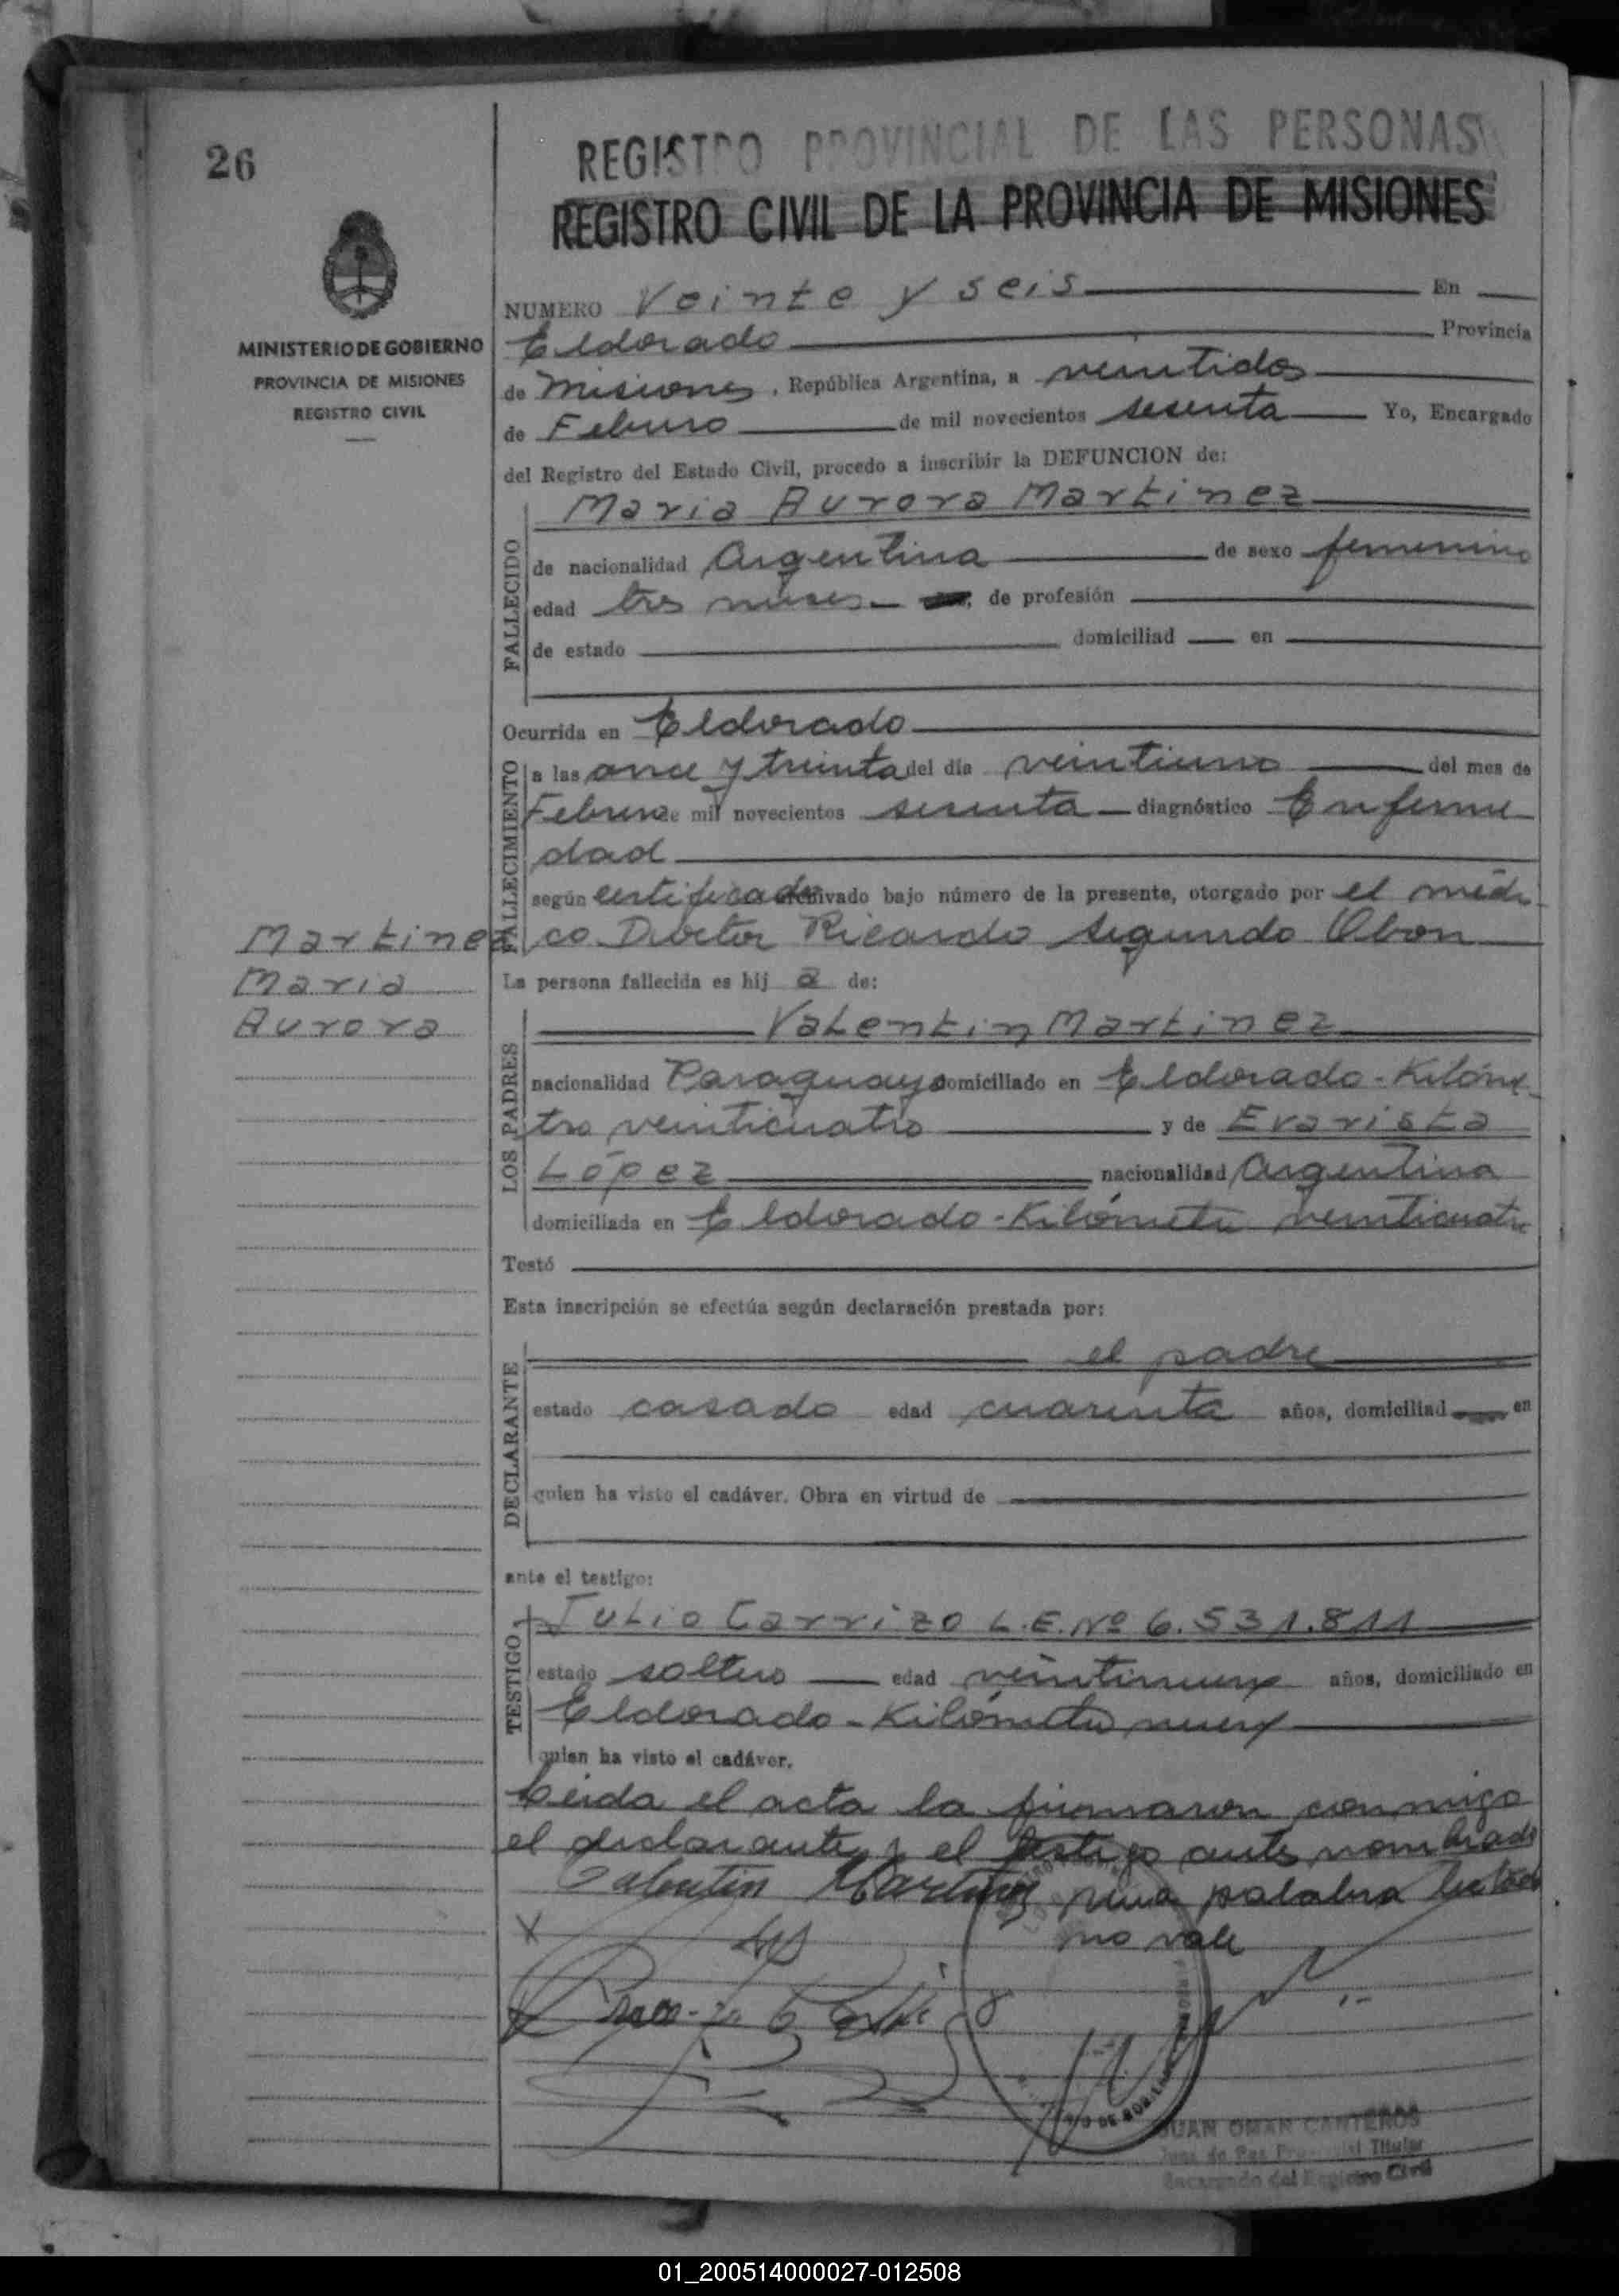 26
REGISTRO PROVINCIAL DE LAS PERSONAS
REGISTRO CIVIL DE LA PROVINCIA DE MISIONES
MINISTERIO DE GOBIERNO
PROVINCIA DE MISIONES
REGISTRO CIVIL
NUMERO Veinte y seis En
Eldorado Provincia
de Misiones, República Argentina, a veintidos
de Febrero de mil novecientos sesenta Yo, Encargado
del Registro del Estado Civil, procedo a inscribir la DEFUNCION de:
FALLECIDO
Maria Aurora Martinez
de nacionalidad Argentina de sexo femenino
edad tres meses, de profesión
de estado domiciliad en
Ocurrida en Eldorado
FALLECIMIENTO
a las once y treinta del día veintiuno del mes de
Febrero de mil novecientos sesenta diagnóstico Enferme
dad
según certificado archivado bajo número de la presente, otorgado por el médi
co Doctor Ricardo Segundo Obon
Martinez
Maria
Aurora
La persona fallecida es hij a de:
LOS PADRES
Valentin Martinez
nacionalidad Paraguayo domiciliado en Eldorado-Kilóme
tro veinticuatro y de Evarista
López nacionalidad Argentina
domiciliada en Eldorado-Kilómetro veinticuatro
Testó
Esta inscripción se efectúa según declaración prestada por:
DECLARANTE
el padre
estado casado edad cuarenta años, domiciliad en
quien ha visto el cadáver. Obra en virtud de
ante el testigo:
TESTIGO
Julio Carrizo L.E. Nº 6.531.811
estado soltero edad veintinueve años, domiciliado en
Eldorado-Kilómetro nueve
quien ha visto el cadáver.
Leida el acta la firmaron conmigo
el declarante y el testigo antes nombrado
Valentin Martinez una palabra testada
no vale
JUAN OMAR CANTEROS
Juez de Paz Provincial Titular
Encargado del Registro Civil
01_200514000027-012508